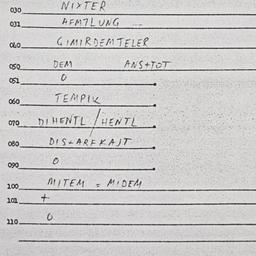 030 NIXTER
031 AFMTLUNG
040 GIMIRDEMTELER
050 DEM ANS+TOT
051 0
060 TEMPIK
070 DIHENTL / HENTL
080 DIS+ARFKAJT
090 0
100 MITEM = MIDEM
101 +
110 0